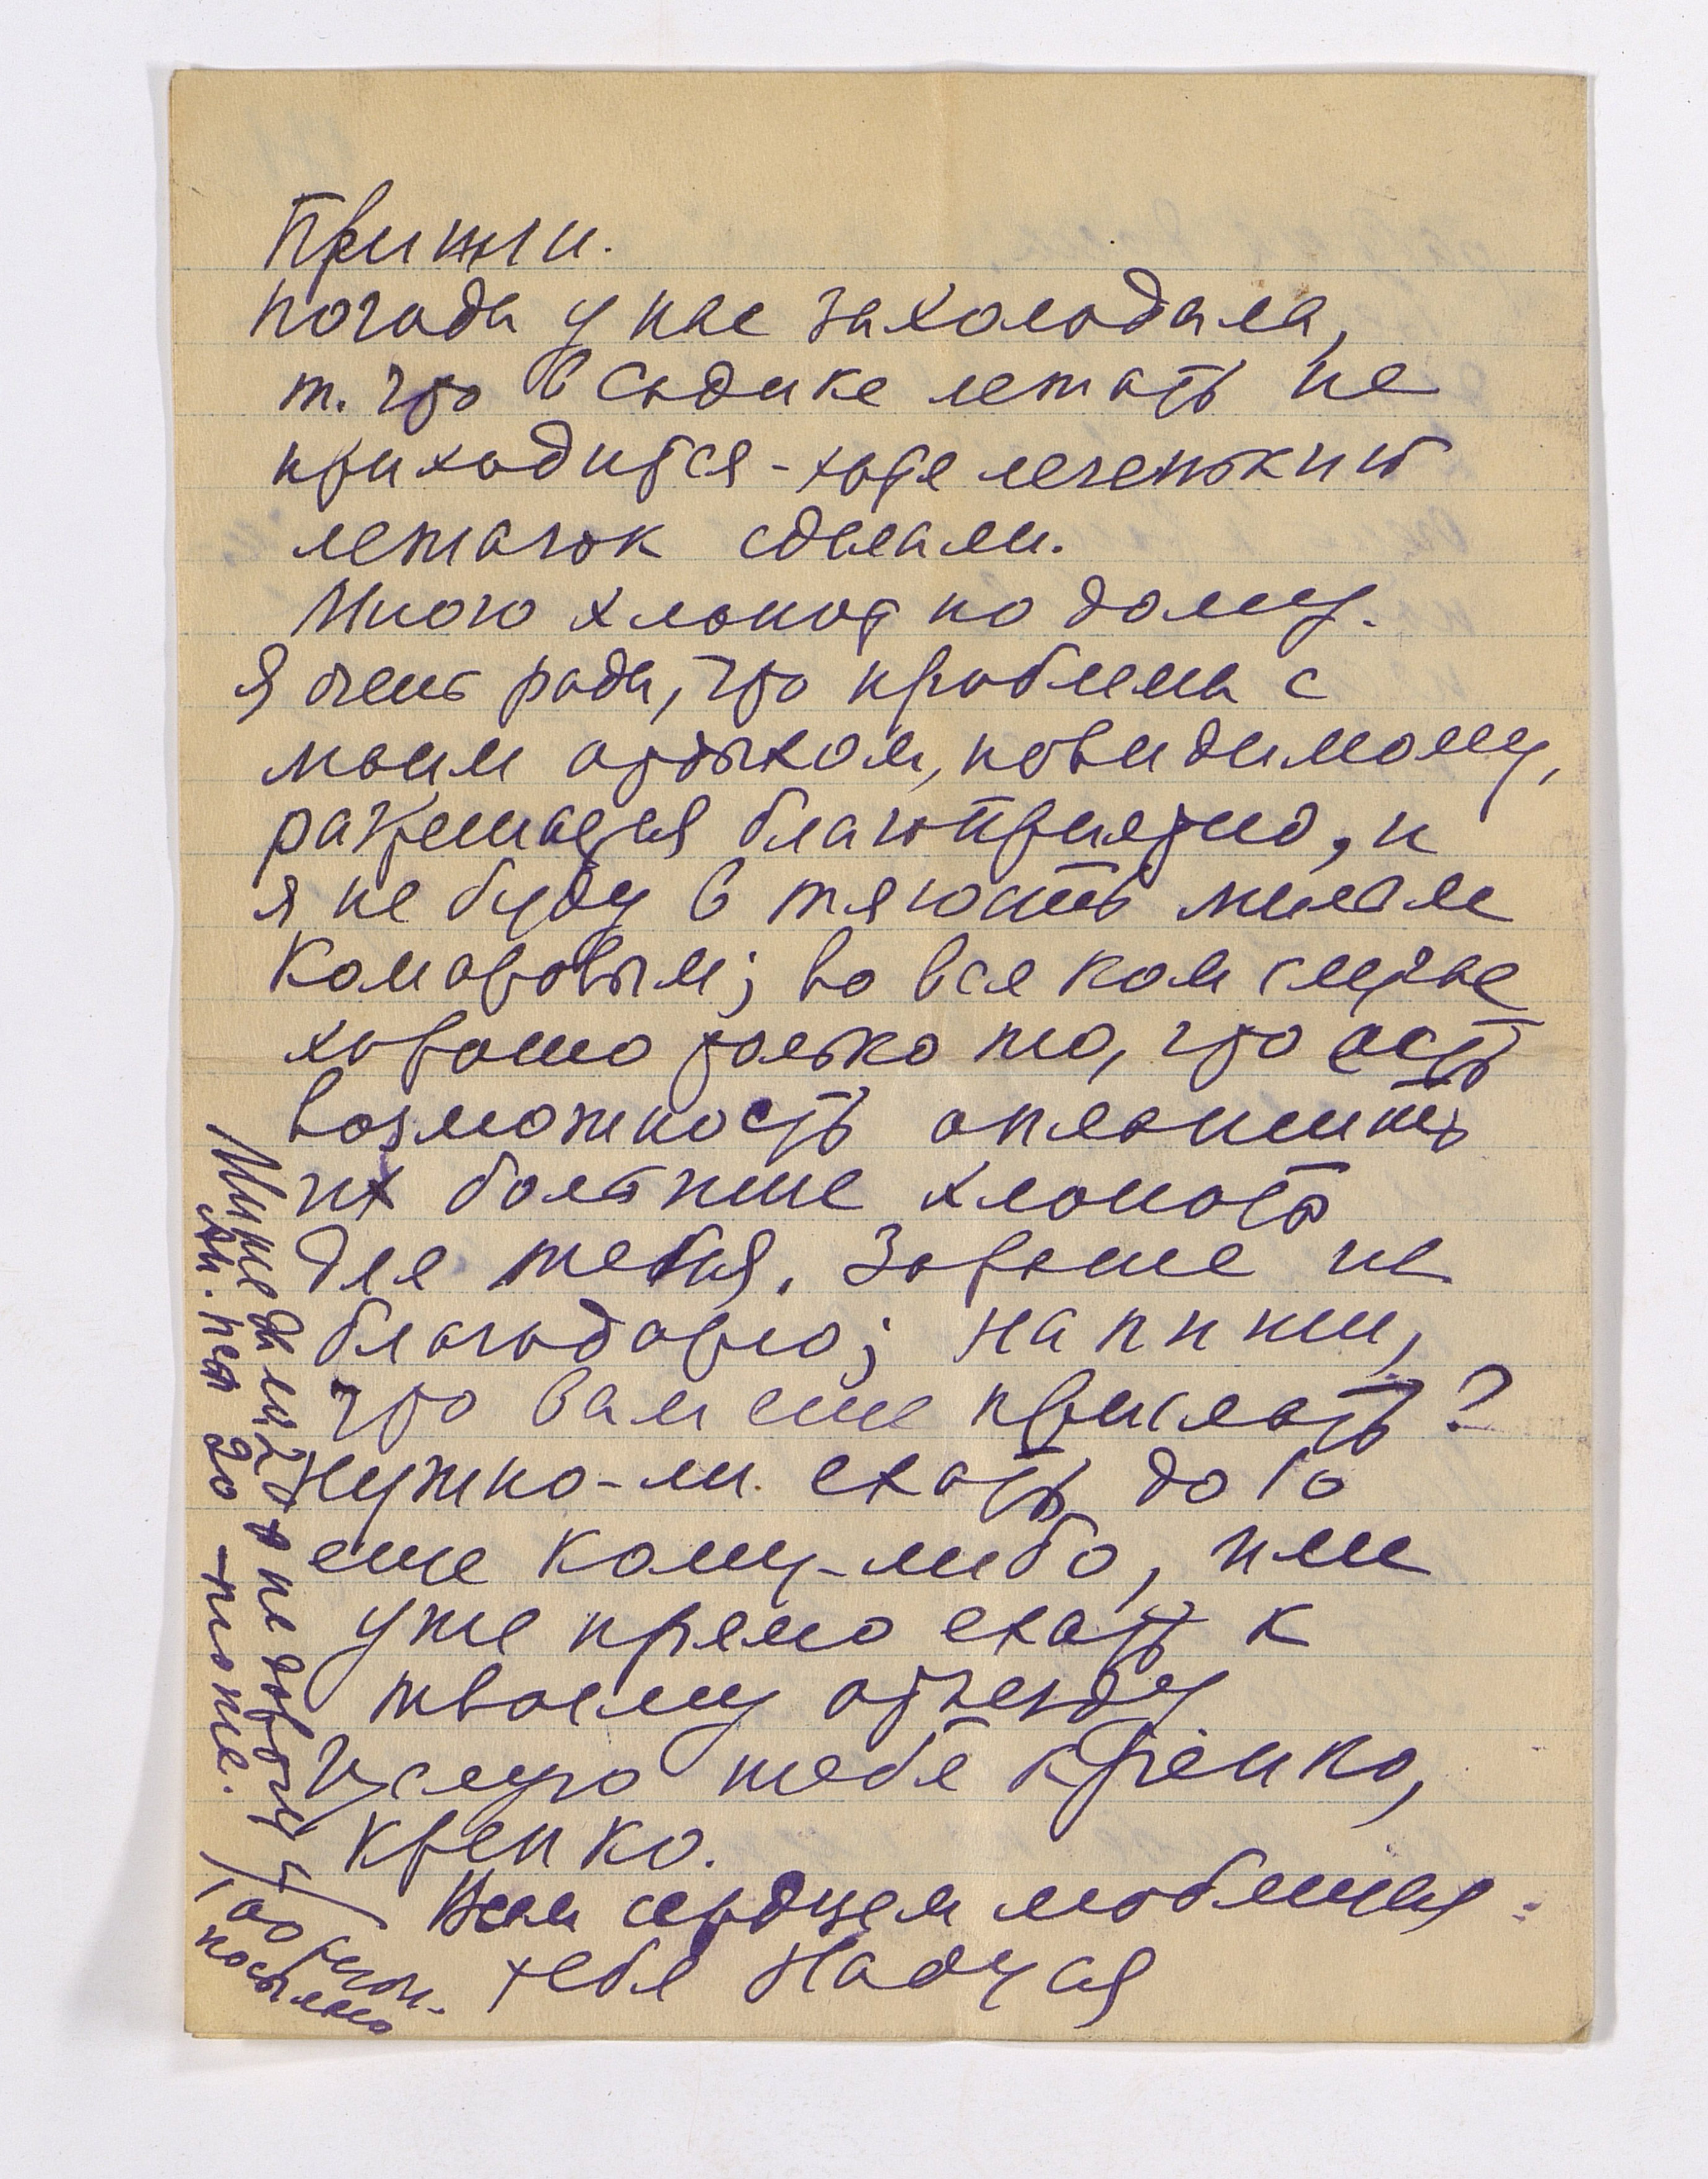 Пришли.
погода у нас захолодала,
т. что в садике лежать не
приходится - хотя лёгенький
лежачок сделали.
Много хлопот по дому.
Я очень рада, что проблема с
моим отдыхом, повидимому,
разрешается благоприятно, и
я не буду в тягость милым
Комаровым; во всяком случае
хорошо только то, что есть
возможность
их большие хлопоты
для тебя. Заранее не
благодарю; напиши,
что вам еще прислать?
Нужно-ли ехать до 10
еще кому-либо, или
уже прямо ехать к
твоему отъезду
Целую тебя крепко,
крепко.
Всем сердцем любящая
тебя Надуся
не до
100
посылаю